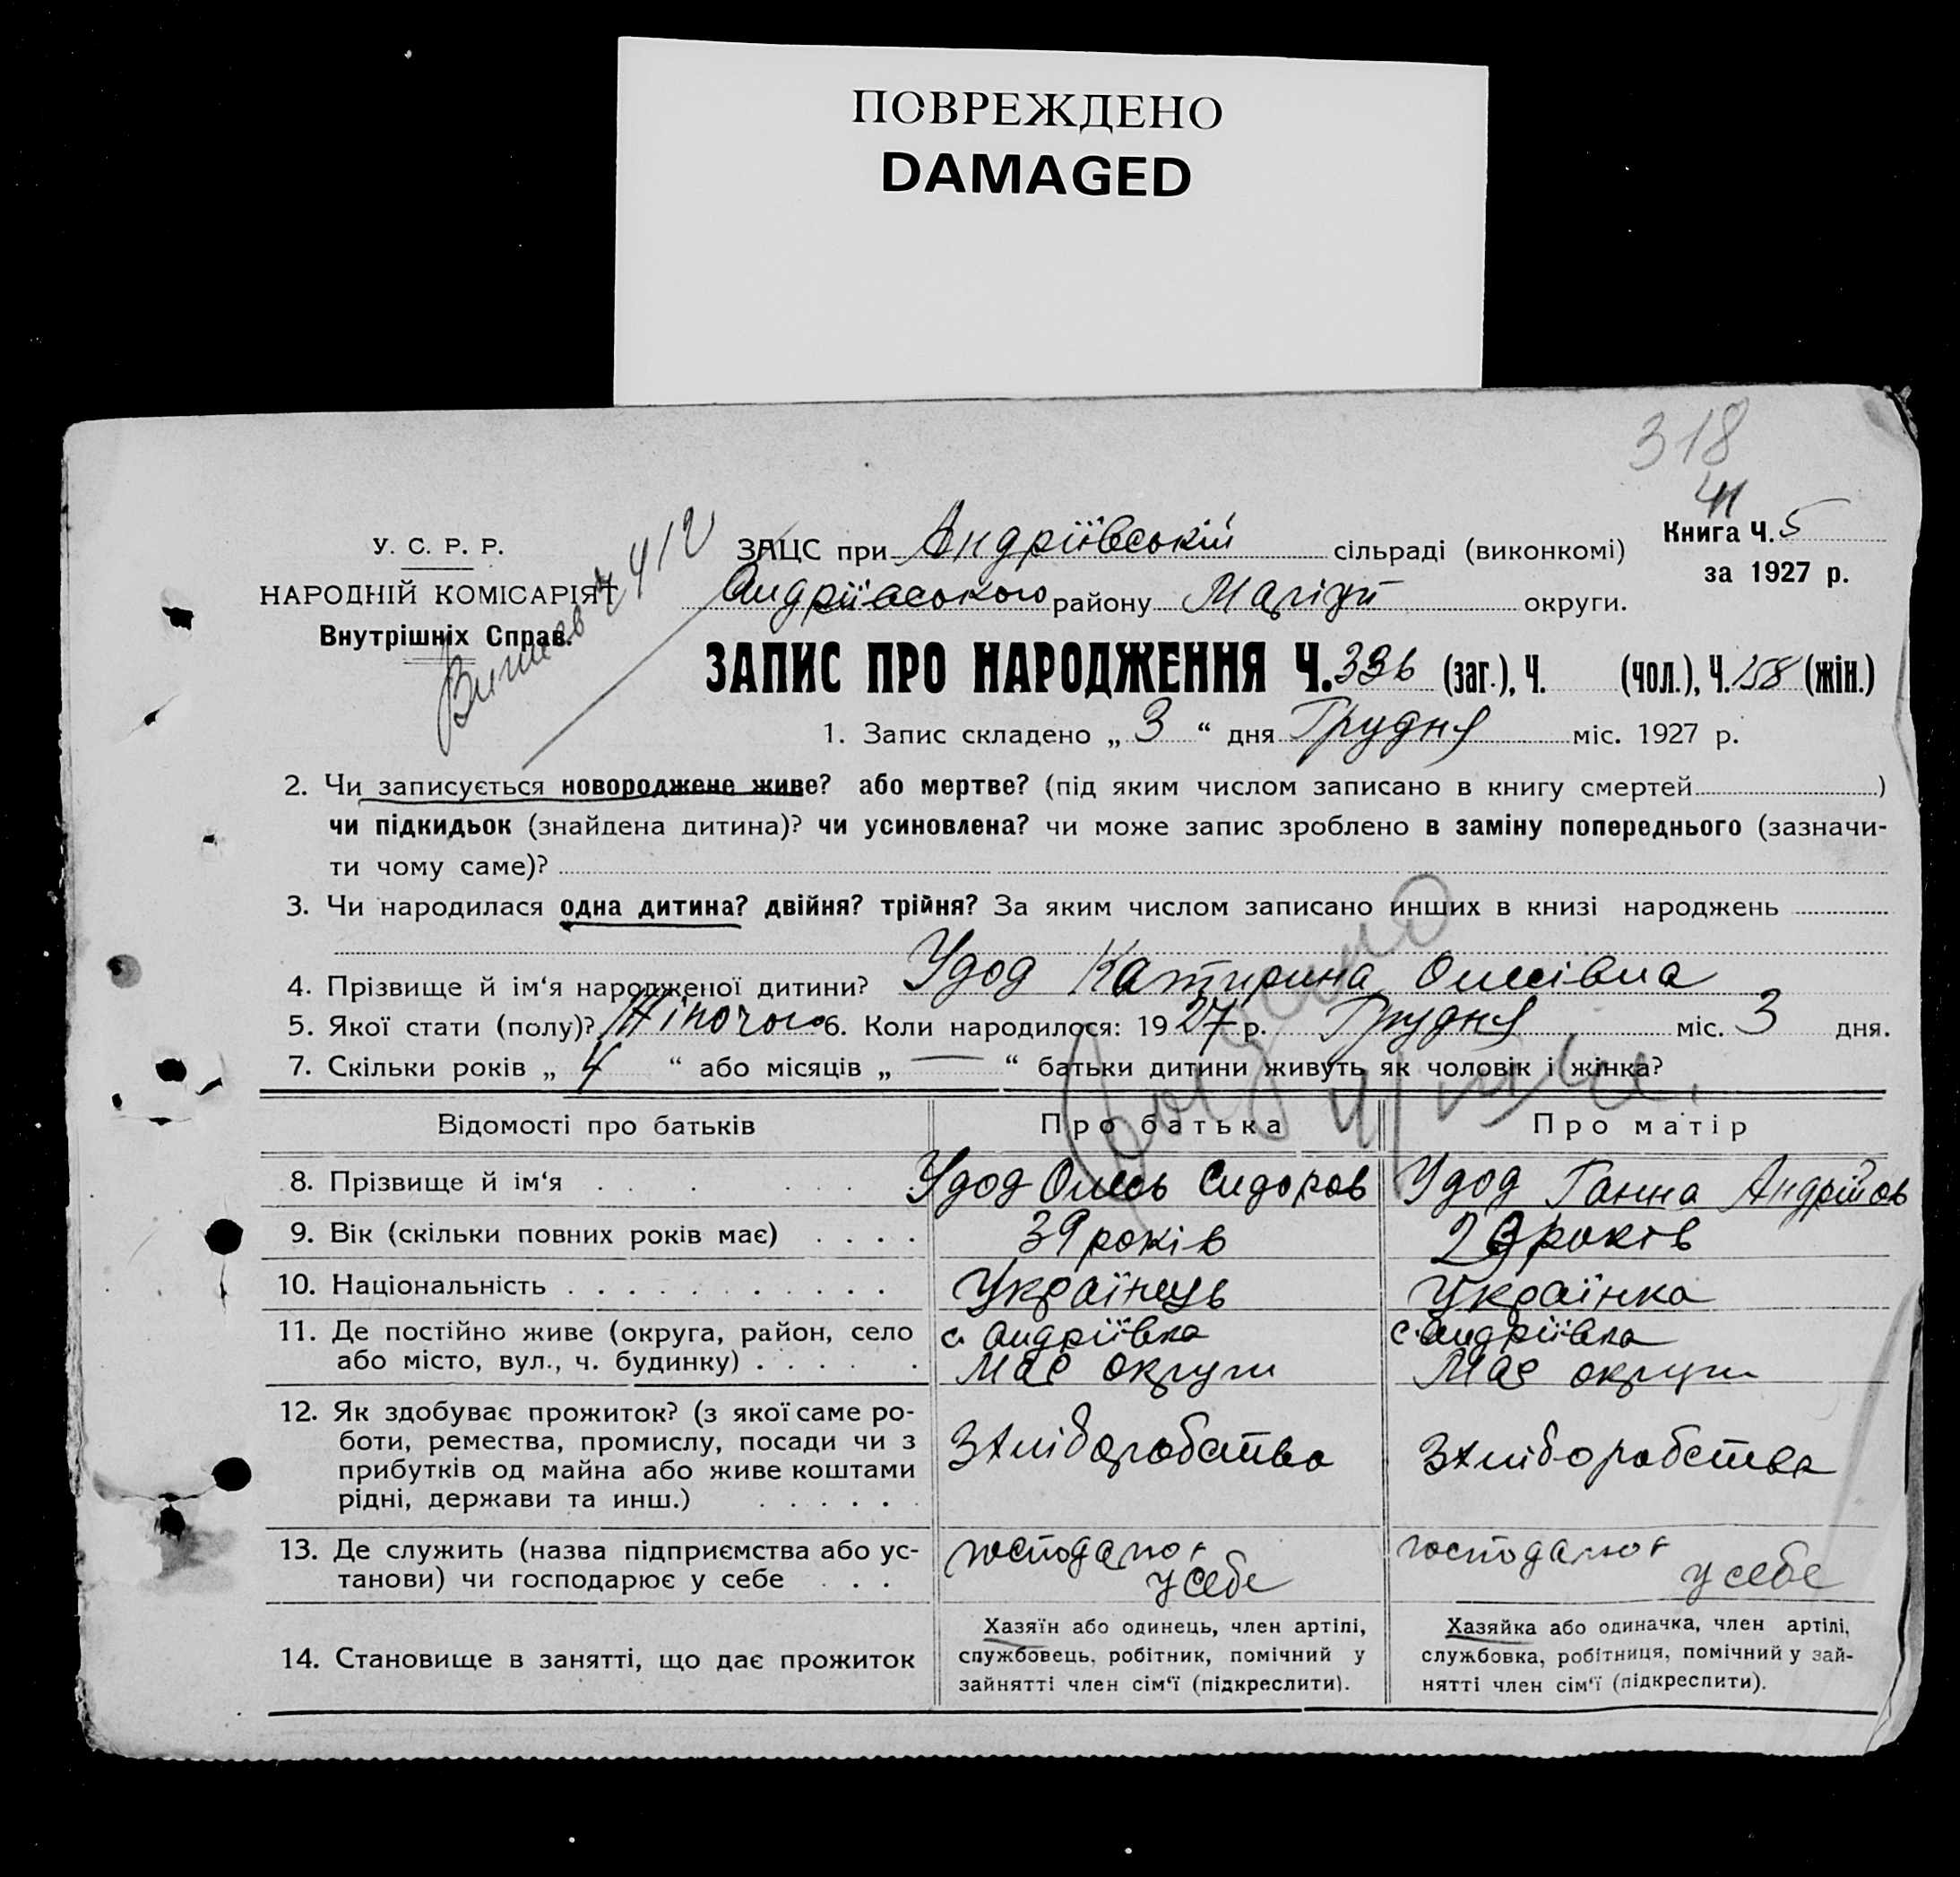 ПОВРЕЖДЕНО
DAMAGED
318
41
У. С. Р. Р.
НАРОДНІЙ КОМІСАРІЯТ
Внутрішніх Справ.
412
ЗАЦС при Андріївській сільраді (виконкомі)
Книга Ч. 5
за 1927 р.
Андріївського району Маріуп округи.
ЗАПИС ПРО НАРОДЖЕННЯ Ч. 336 (заг.), Ч. (чол.), Ч. 158 (жін.)
1. Запис складено „ 3 “ дня Грудня міс. 1927 р.
2. Чи записується новороджене живе? або мертве? (під яким числом записано в книгу смертей )
чи підкидьок (знайдена дитина)? чи усиновлена? чи може запис зроблено в заміну попереднього (зазначи-
ти чому саме)?
3. Чи народилася одна дитина? двійня? трійня? За яким числом записано инших в книзі народжень
4. Прізвище й ім‘я народженої дитини? Удод Катирина Олесівна
5. Якої стати (полу)? Жіночого 6. Коли народилося: 1927 р. Грудня міс. 3 дня.
7. Скільки років „ 4 “ або місяців „ — “ батьки дитини живуть як чоловік і жінка?
Відомості про батьків Про батька Про матір
8. Прізвище й ім‘я . . . . . . Удод Олесь Сидоров Удод Ганна Андріїов
9. Вік (скільки повних років має) . . . . 39 років років
10. Національність . . . . . . . . . . . Українець Українка
11. Де постійно живе (округа, район, село с. Андріївка с. Андріївка
або місто, вул., ч. будинку) . . . . . . Має округи Має округи
12. Як здобуває прожиток? (з якої саме ро-
боти, ремества, промислу, посади чи з
прибутків од майна або живе коштами
рідні, держави та инш.) . . . . . .
Зхліборобства Зхліборобства
13. Де служить (назва підприємства або ус-
танови) чи господарює у себе . . .
господарює у себе господарює у себе
14. Становище в занятті, що дає прожиток
Хазяїн або одинець, член артілі,
службовець, робітник, помічний у
зайнятті член сім‘ї (підкреслити).
Хазяйка або одиначка, член артілі,
службовка, робітниця, помічний у зай-
нятті член сім‘ї (підкреслити).